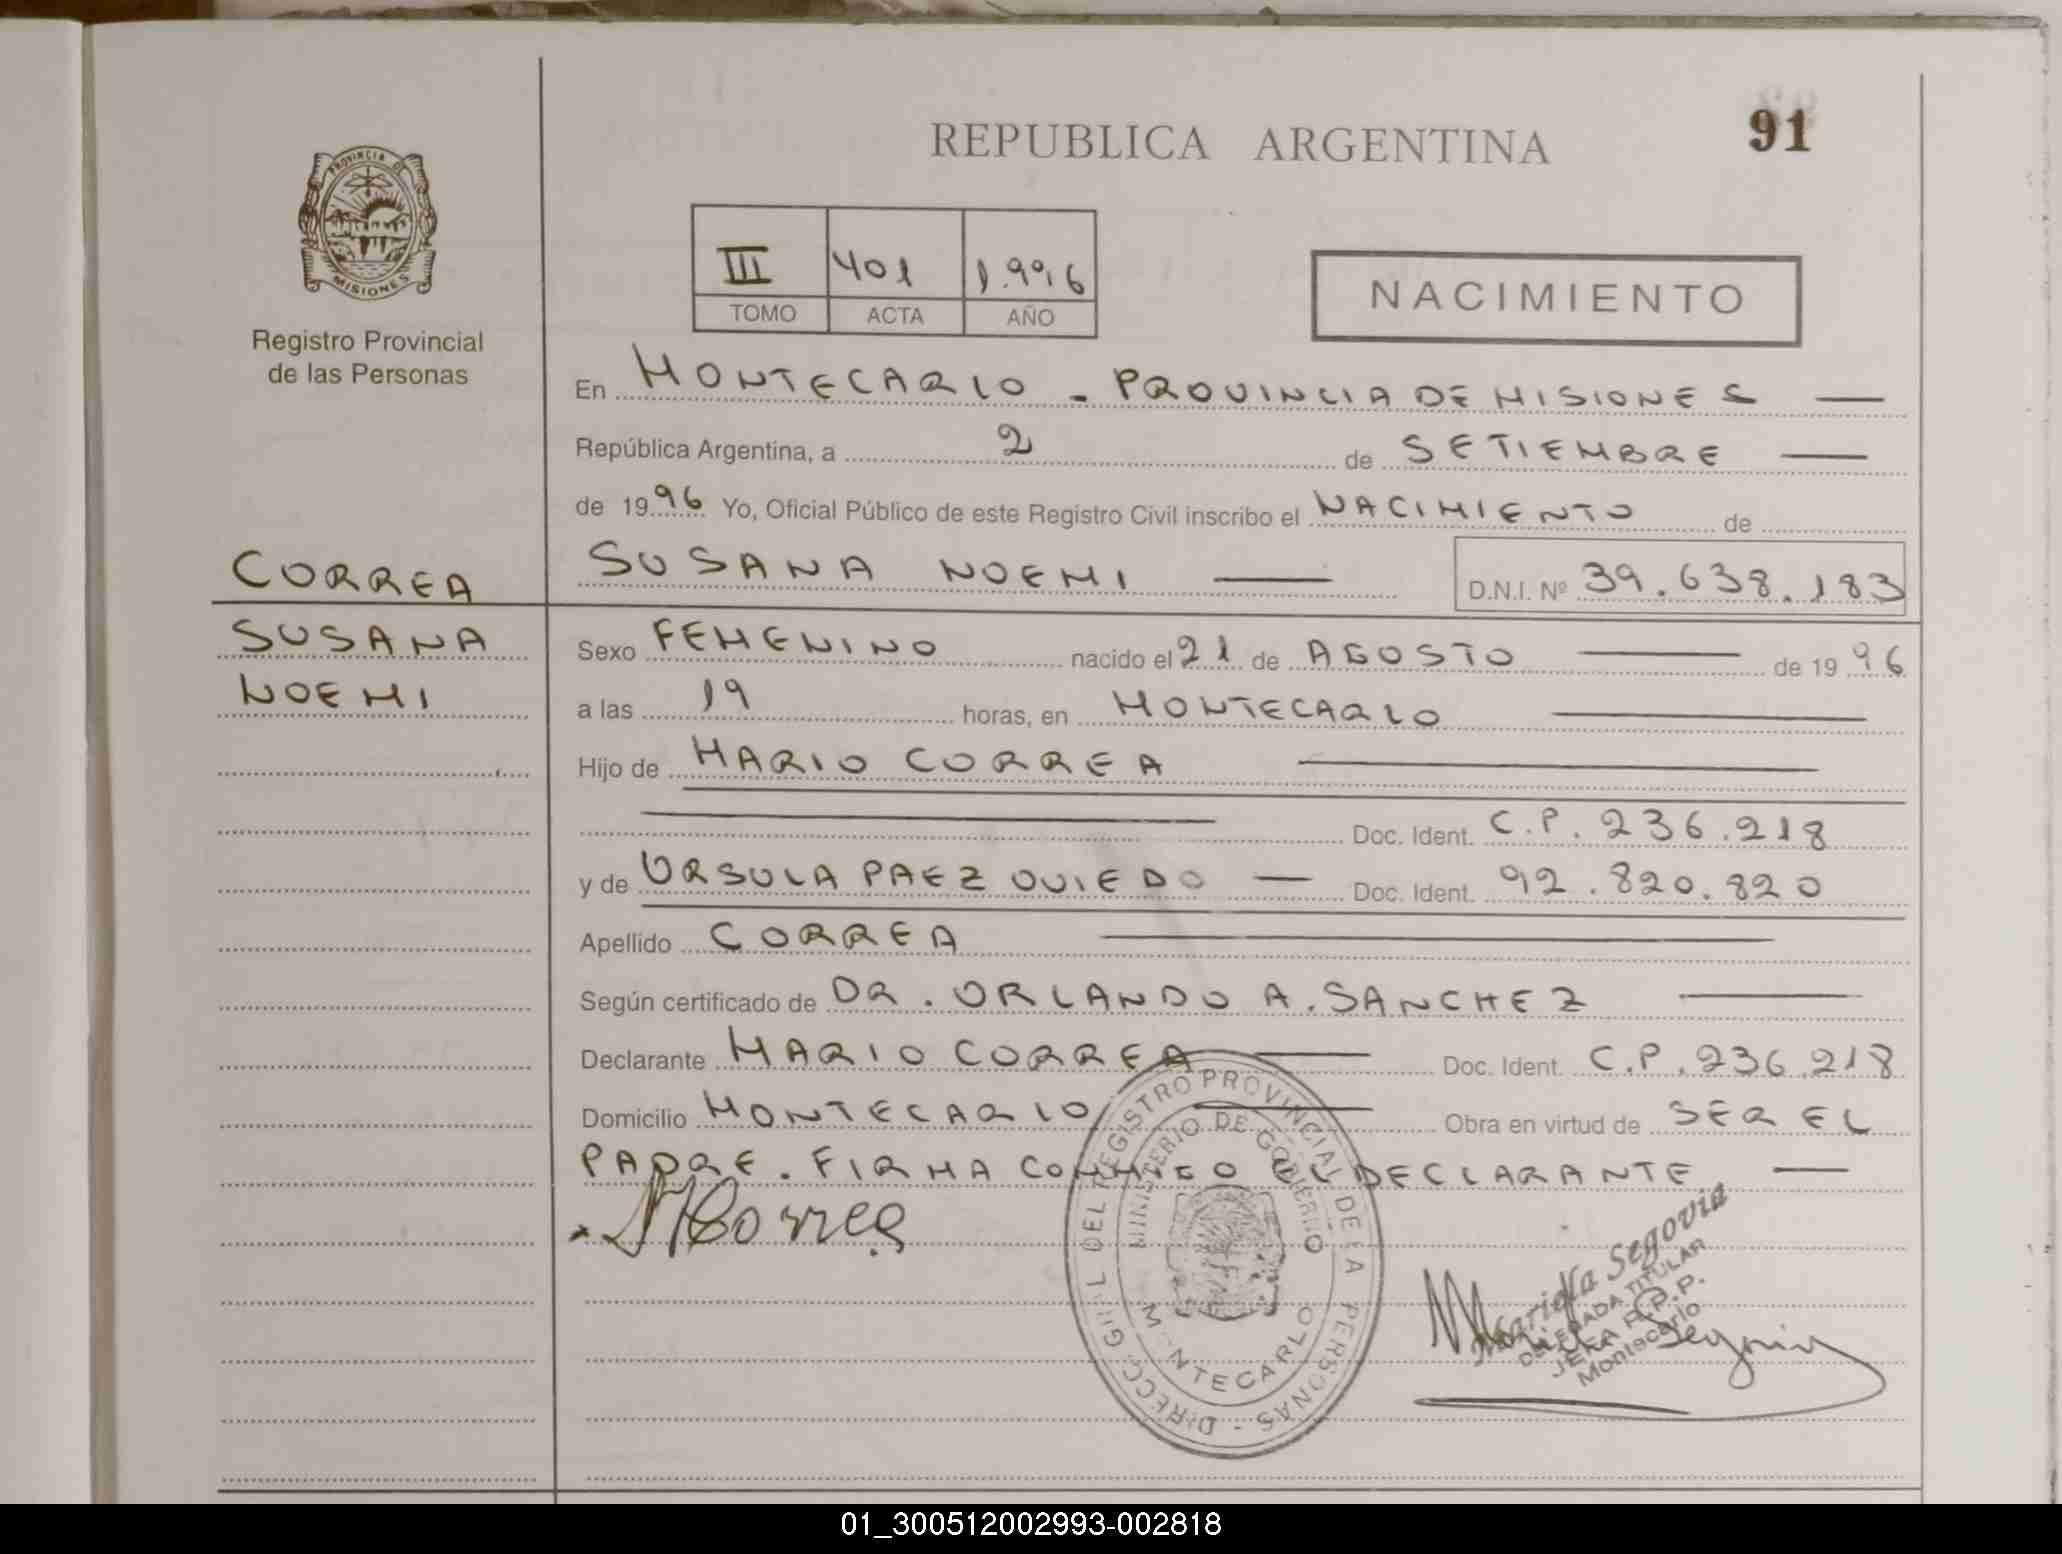 REPUBLICA ARGENTINA
91
PROVINCIA DE
MISIONES
Registro Provincial
de las Personas
III 401 1.996
TOMO ACTA AÑO
NACIMIENTO
En MONTECARLO - PROVINCIA DE MISIONES
República Argentina, a 2 de SETIEMBRE
de 1996 Yo, Oficial Público de este Registro Civil inscribo el NACIMIENTO de
CORREA
SUSANA
NOEMI
SUSANA NOEMI D.N.I. Nº 39.638.183
Sexo FEMENINO nacido el 21 de AGOSTO de 1996
a las 19 horas, en MONTECARLO
Hijo de MARIO CORREA
Doc. Ident. C.P. 236.218
y de URSULA PAEZ OVIEDO Doc. Ident. 92.820.820
Apellido CORREA
Según certificado de DR. ORLANDO A. SANCHEZ
Declarante MARIO CORREA Doc. Ident. C.P. 236.218
Domicilio MONTECARLO Obra en virtud de SER EL
PADRE. FIRMA CONMIGO EL DECLARANTE
Correa
DEL REGISTRO PROVINCIAL DE LA PERSONAS
MINISTERIO DE GOBIERNO
MONTECARLO
Mariella Segovia
DELEGADA TITULAR
JEFA R.P.P.
Montecarlo
01_300512002993-002818